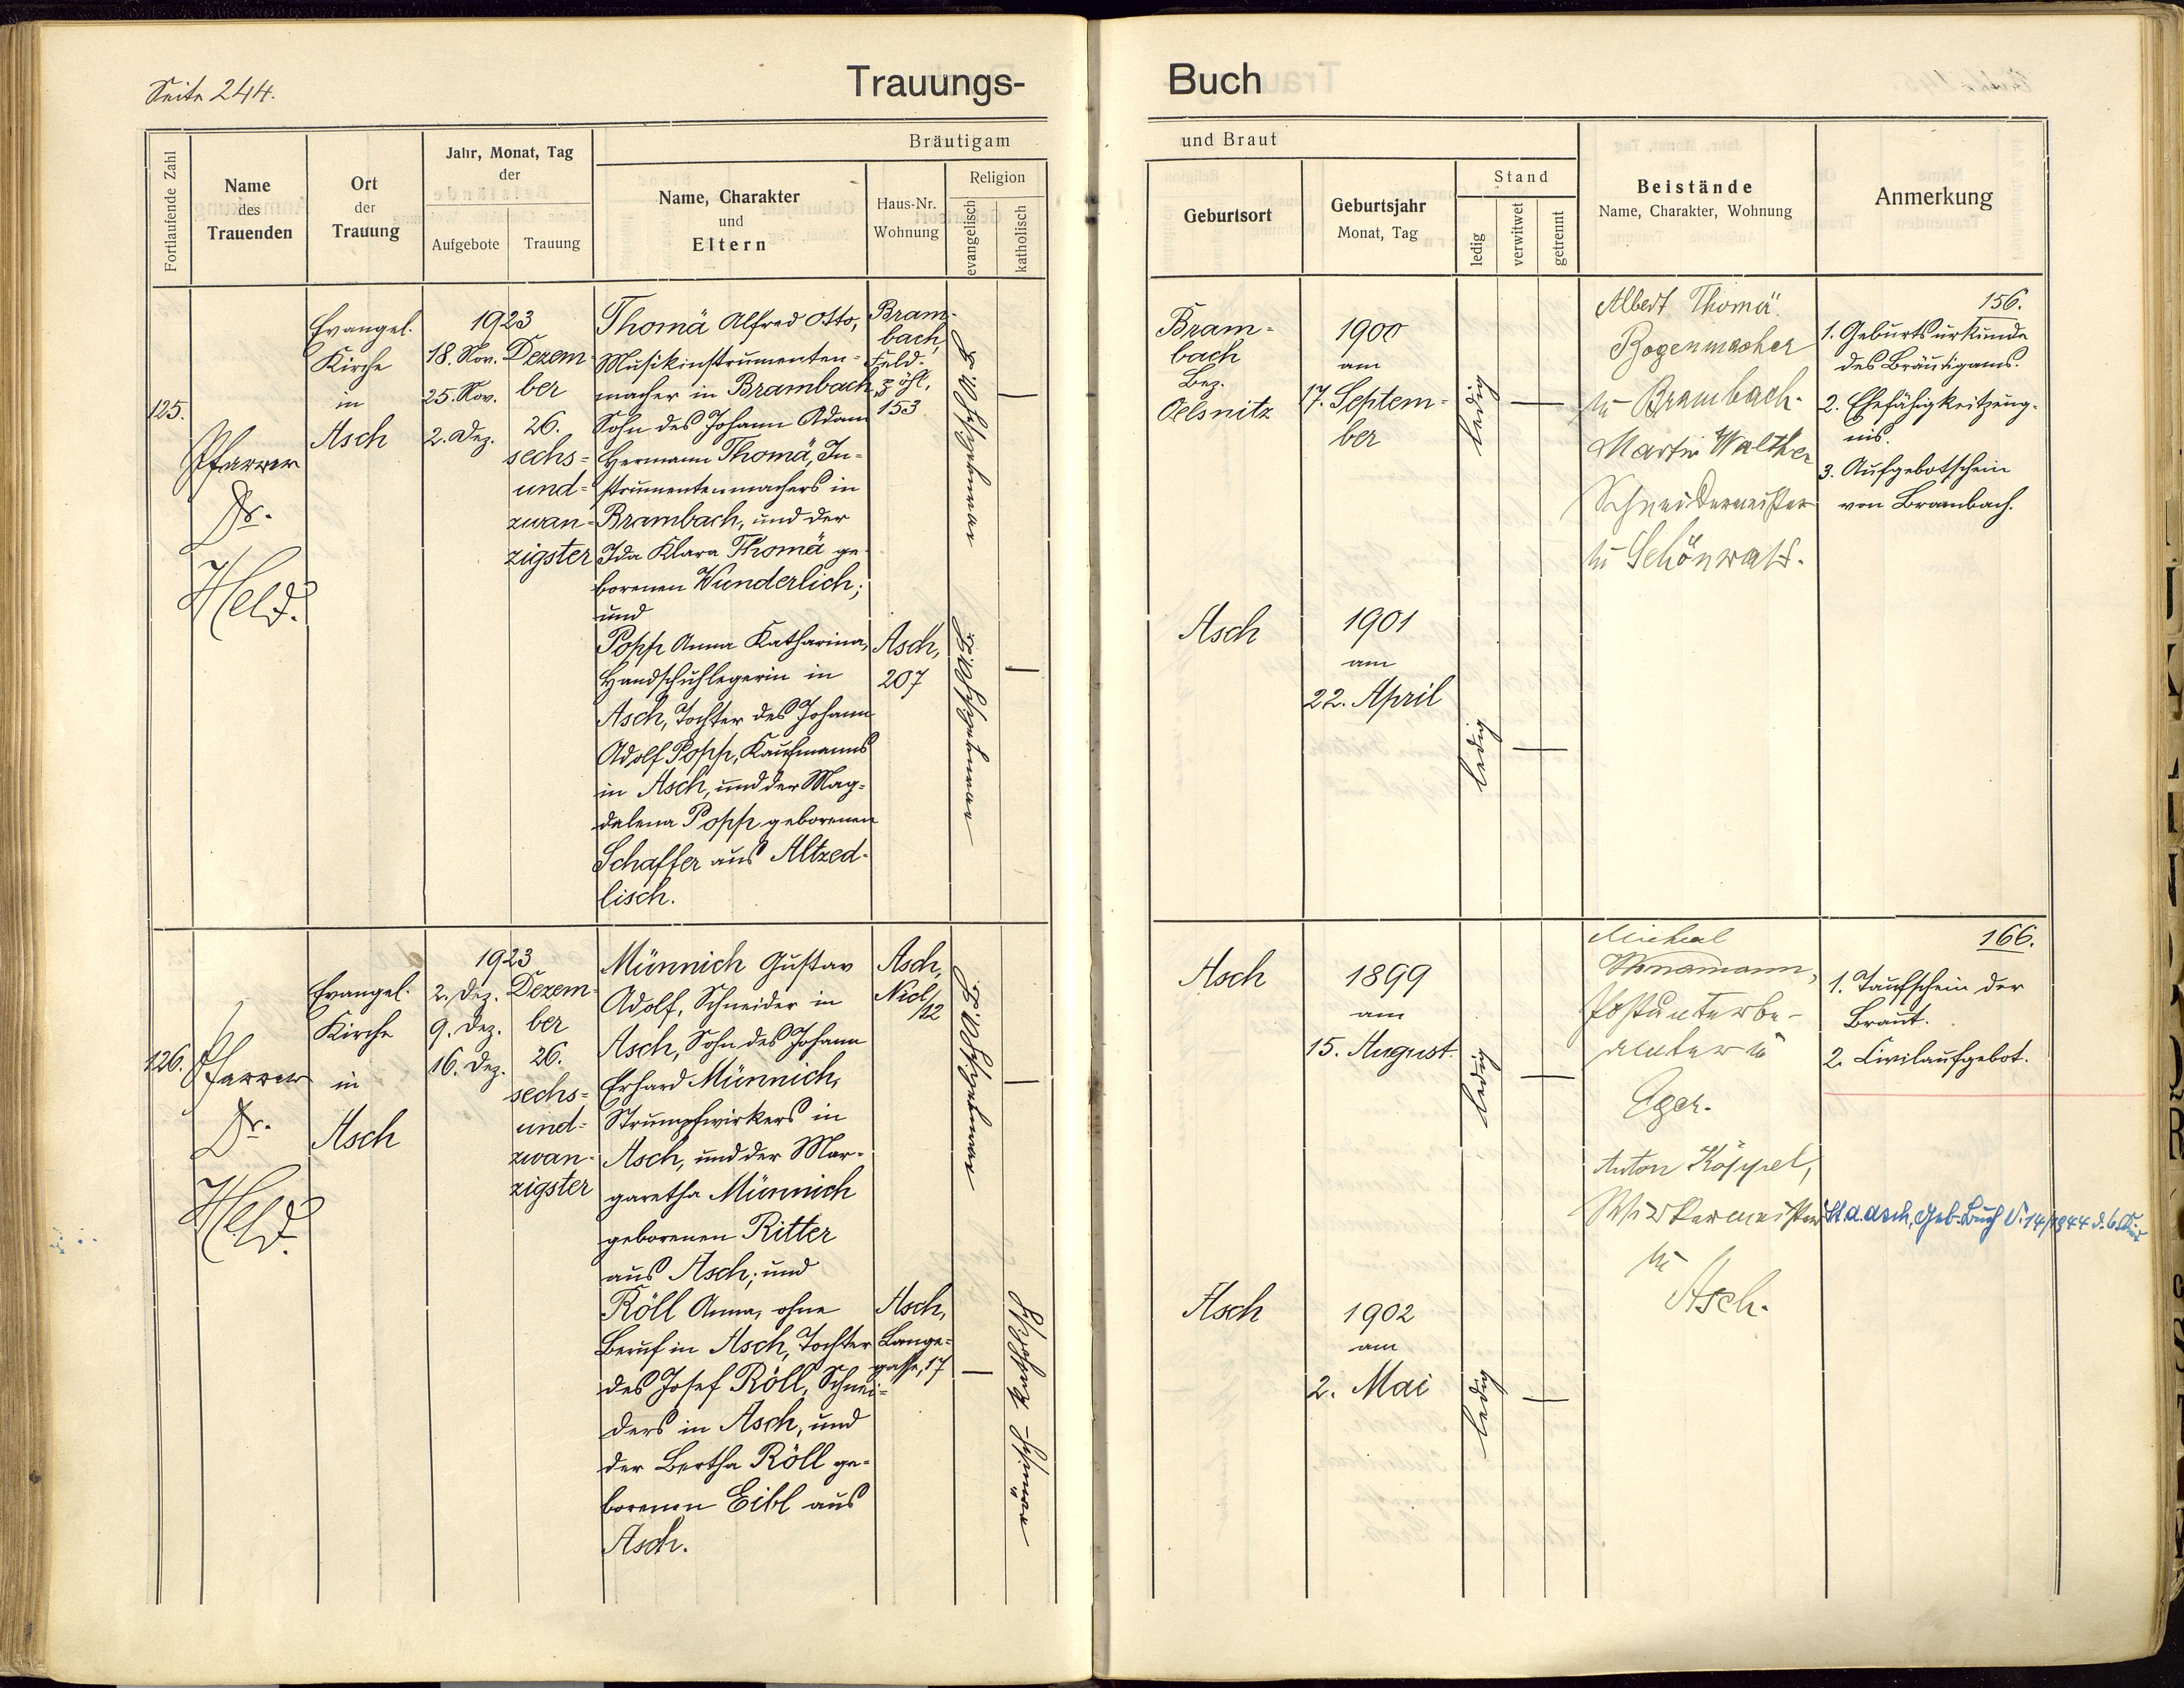 Seite 244.
Trauungs-
Fortlaufende Zahl
Name
des
Trauenden
Ort
der
Trauung
Jahr, Monat, Tag
der
Aufgebote
Trauung
Bräutigam
Name, Charakter
und
Eltern
Haus-Nr.
Wohnung
Religion
evangelisch
katholisch
125.
Pfarrer
Dr.
Held.
Evangel.
Kirche
in
Asch
1923
18. Nov.
25. Nov.
2. Dez.
Dezem-
ber
26.
sechs-
und-
zwan-
zigster
Thomä Alfred Otto,
Musikinstrumenten-
macher in Brambach,
Sohn des Johann Adam
Hermann Thomä, In-
strumentenmachers in
Brambach, und der
Ida Klara Thomä ge-
borenen Wunderlich;
und
Popp Anna Katharina,
Handschuhlegerin in
Asch, Tochter des Johann
Adolf Popp, Kaufmanns
in Asch, und der Mag-
dalena Popp geborenen
Schaffer aus Altzed-
lisch.
Bram-
bach,
153
Asch,
207
126.
Pfarrer
Dr.
Held.
Evangel.
Kirche
in
Asch
1923
2. Dez.
9. Dez.
16. Dez.
Dezem-
ber
26.
sechs-
und-
zwan-
zigster
Münnich Gustav
Adolf, Schneider in
Asch, Sohn des Johann
Erhard Münnich,
Strumpfwirkers in
Asch, und der Mar-
garetha Münnich
geborenen Ritter
aus Asch; und
Röll Anna, ohne
Beruf in Asch, Tochter
des Josef Röll, Schnei-
ders in Asch, und
der Bertha Röll ge-
borenen Eibl aus
Asch.
Asch,
Asch,
Lange-
gasse, 17
Buch
und Braut
Geburtsort
Geburtsjahr
Monat, Tag
Stand
ledig
verwitwet
getrennt
Beistände
Name, Charakter, Wohnung
Anmerkung
Bram-
bach
Bez.
Oelsnitz
1900
am
17. Septem-
ber
ledig
Albert Thomä.
Bogenmacher
in Brambach.
Martin Walther
Schneidermeister
in Schönwald.
156.
1. Geburtsurkunde
des Bräutigams.
2. Ehefähigkeitzeug-
nis.
3. Aufgebotschein
von Brambach.
Asch
1901
am
22. April
ledig
Asch
1899
am
15. August.
ledig
Michael
Postunterbe-
amter in
Eger.
Anton Köppel,
Wirkermeister
in
Asch.
166.
1. Taufschein der
Braut.
2. Civilaufgebot.
Asch
1902
am
2. Mai
ledig